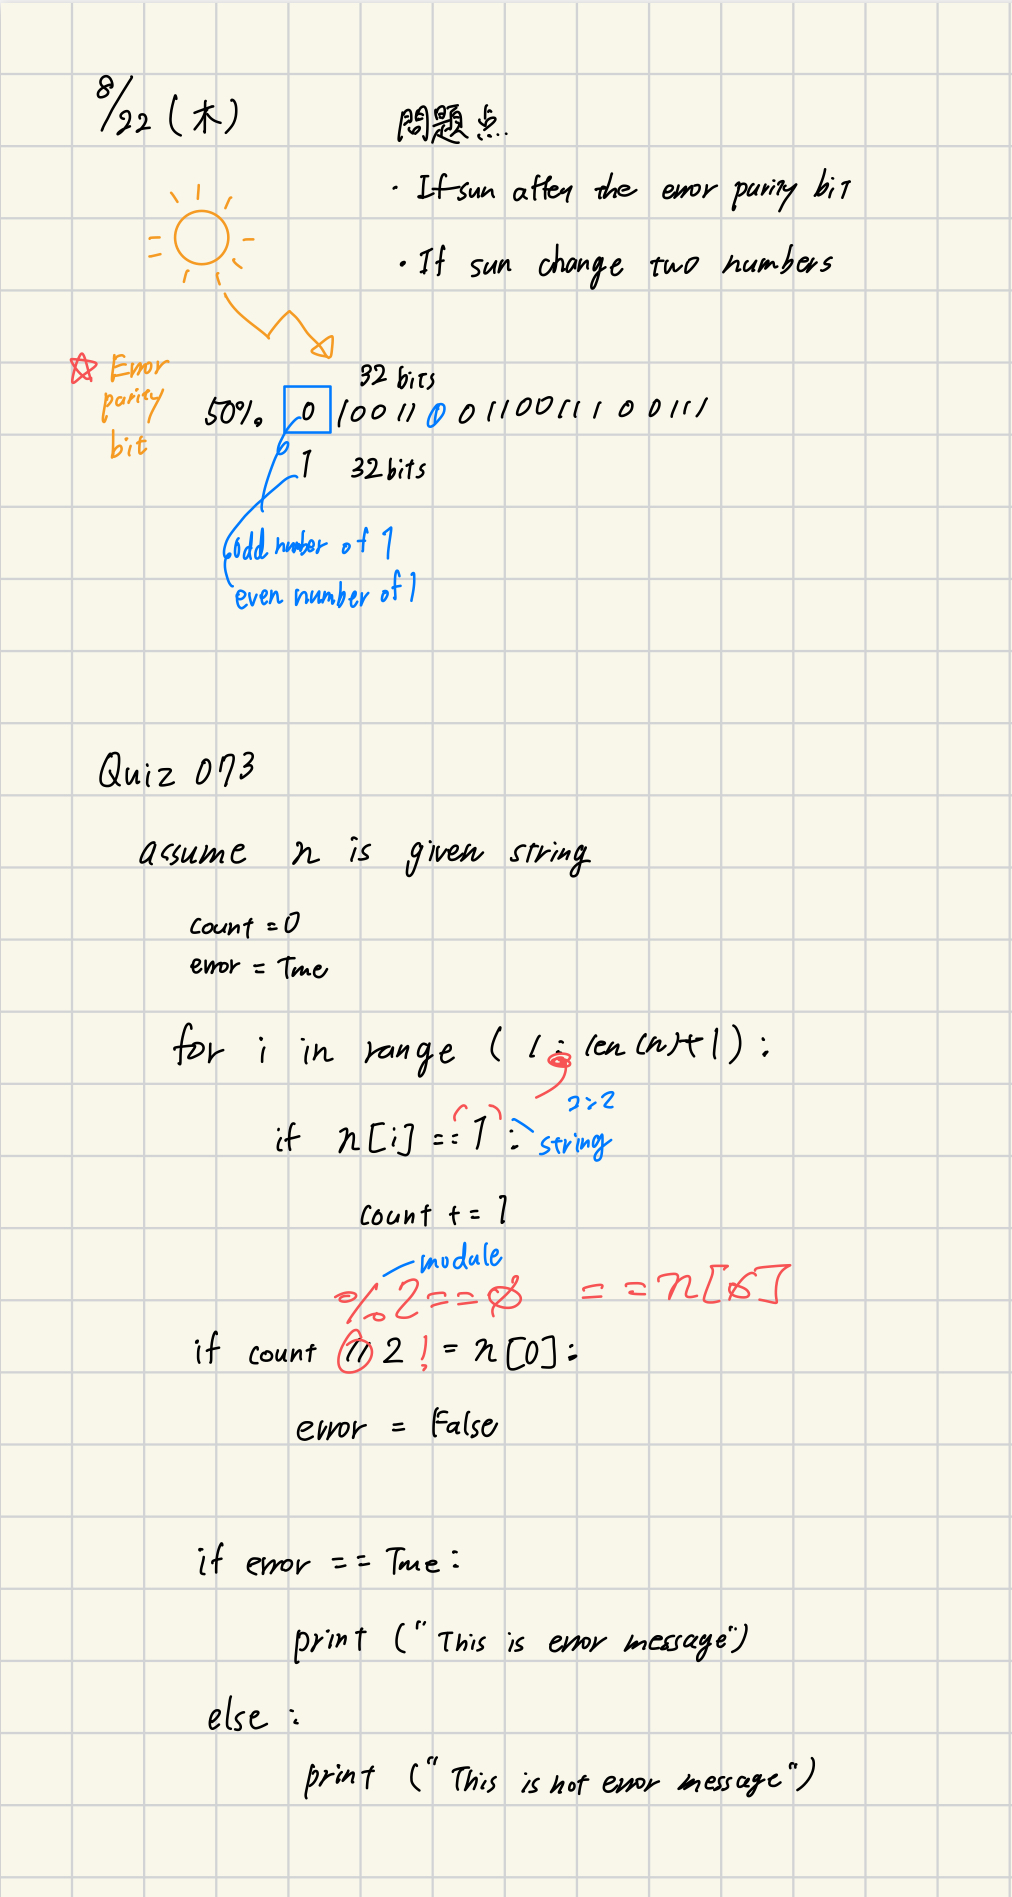 8/22 (木)
問題点
· If sun affey the error purity bit
· If sun change two numbers
☆ Error
parity
bit
32 bits
50%. 0 10011 0 0110011110 0111
1 32bits
odd number of 1
even number of 1
Quiz 073
assume n is given string
count = 0
error = True
for i in range ( 1 : len (n)+1) :
2:2
if n[i] == 1 :
string
count += 1
module
%2==0 ==n[0]
if count // 2 != n[0]:
error = False
if error == True :
print ("This is error message")
else :
print ("This is not error message")